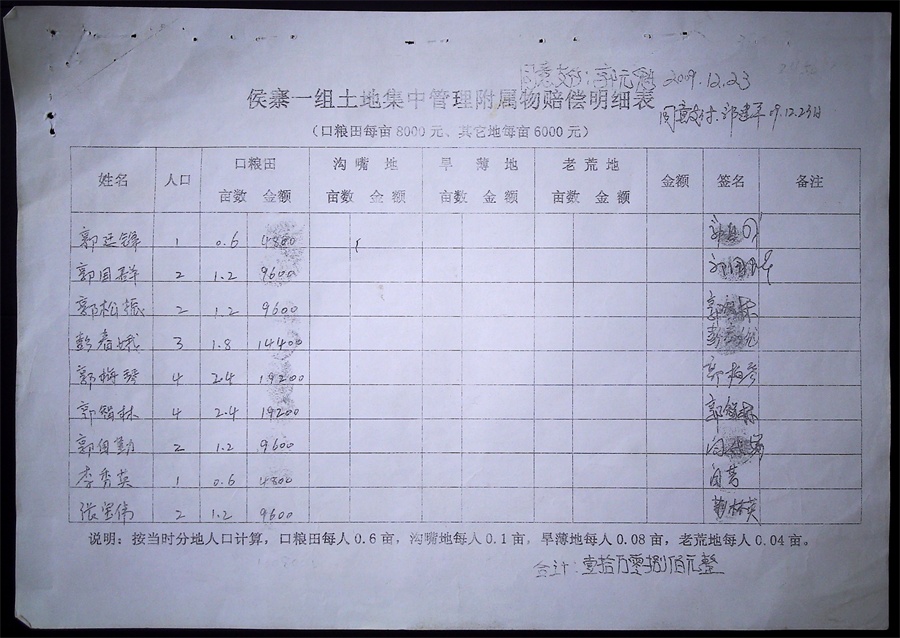 同意支付：郭元魁 2009.12.23
侯寨一组土地集中管理附属物赔偿明细表
同意支付. 郭建平 09.12.23日
（口粮田每亩8000元、其它地每亩6000元）
姓名 人口 口粮田 沟嘴地 旱薄地 老荒地 金额 签名 备注
亩数 金额 亩数 金额 亩数 金额 亩数 金额
郭廷锋 1 0.6 4800
郭国群 2 1.2 9600
郭松振 2 1.2 9600 郭 林
彭春娥 3 1.8 14400 彭
郭梅琴 4 2.4 19200 郭
郭锦林 4 2.4 19200 郭锦林
郭国勤 2 1.2 9600
李秀英 1 0.6 4800
张宝伟 2 1.2 9600 林英
说明：按当时分地人口计算，口粮田每人0.6亩，沟嘴地每人0.1亩，旱薄地每人0.08亩，老荒地每人0.04亩。
合计：壹拾万零捌佰元整